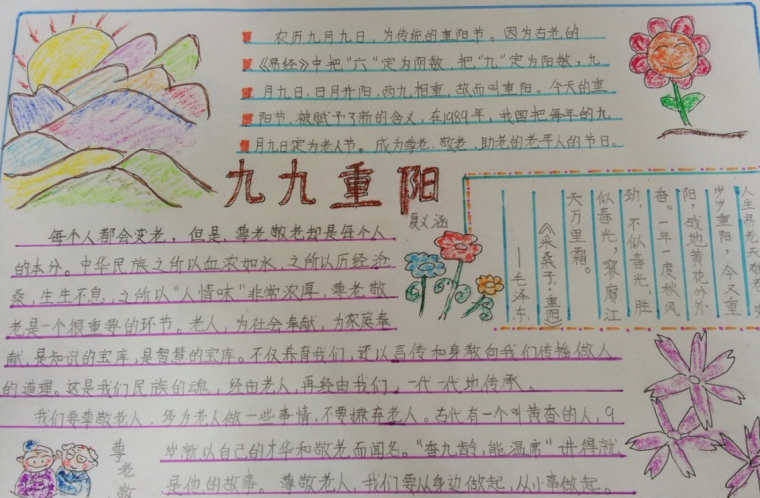 农历九月九日，为传统的重阳节。因为古老的
《易经》中把“六”定为阴数，把“九”定为阳数，九
月九日，日月并阳，两九相重，故而叫重阳。今天的重
阳节，被赋予了新的含义，在1989年，我国把每年的九
月九日定为老人节。成为尊老、敬老、助老的老年人的节日。
九九重阳
每个人都会变老，但是，尊老敬老却是每个人
的本分。中华民族之所以血浓如水，之所以历经沧
桑，生生不息，之所以“人情味”非常浓厚，尊老敬
老是一个很重要的环节。老人，为社会奉献，为家庭奉
献，是知识的宝库，是智慧的宝库。不仅养育我们，还以言传和身教向我们传播做人
的道理。这是我们民族的魂，经由老人，再经由我们，一代一代地传承。
我们要尊敬老人，多为老人做一些事情，不要撇弃老人。古代有一个叫黄香的人，9
岁就以自己的才华和敬老而闻名。“香九龄，能温席”讲得就
是他的故事。尊敬老人，我们要从身边做起，从小事做起。
岁岁重阳，今又重
阳，战地黄花分外
香。一年一度秋风
劲，不似春光，胜
似春光，寥廓江
天万里霜。
《采桑子·重阳》
——毛泽东
尊老敬